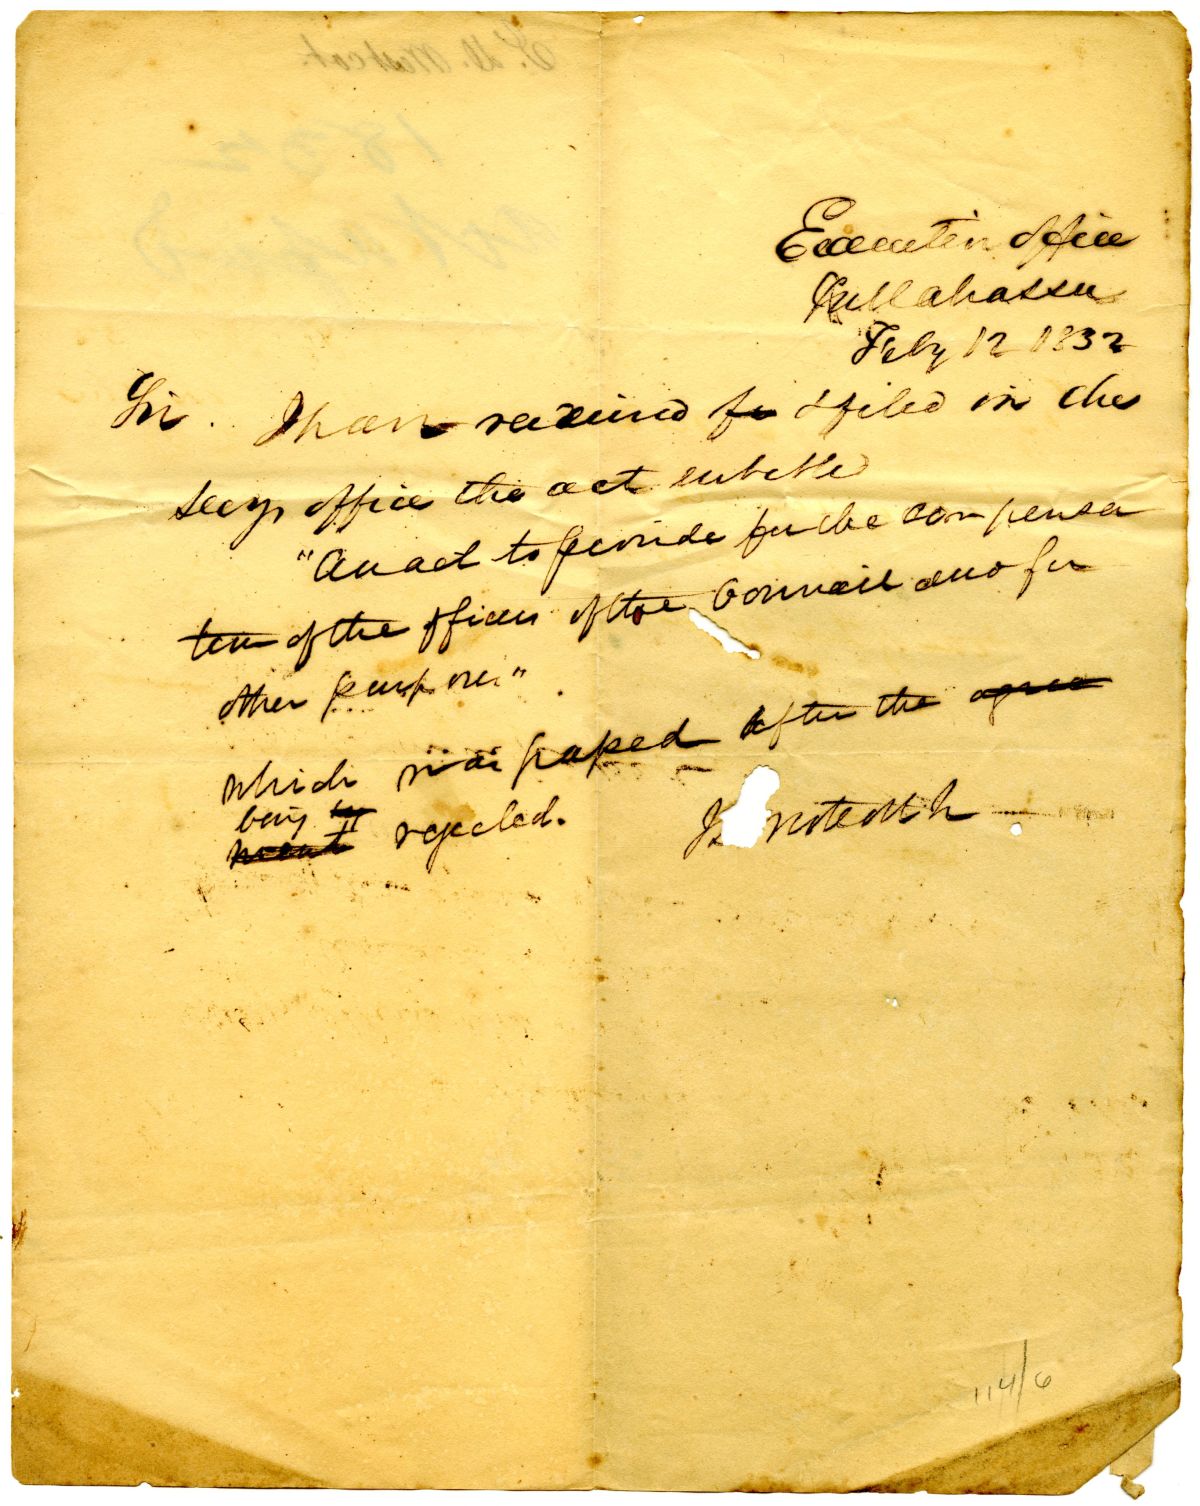 Executive office
Tallahassee
Feby 12 1832
Sir. I have received & filed in the
secys office the act entitled
"An act to provide for the compensa
tion of the officers of the Council and for
other purposes".
which was passed after the agree
being
ment rejected.
Js Westcott Jr
114/6